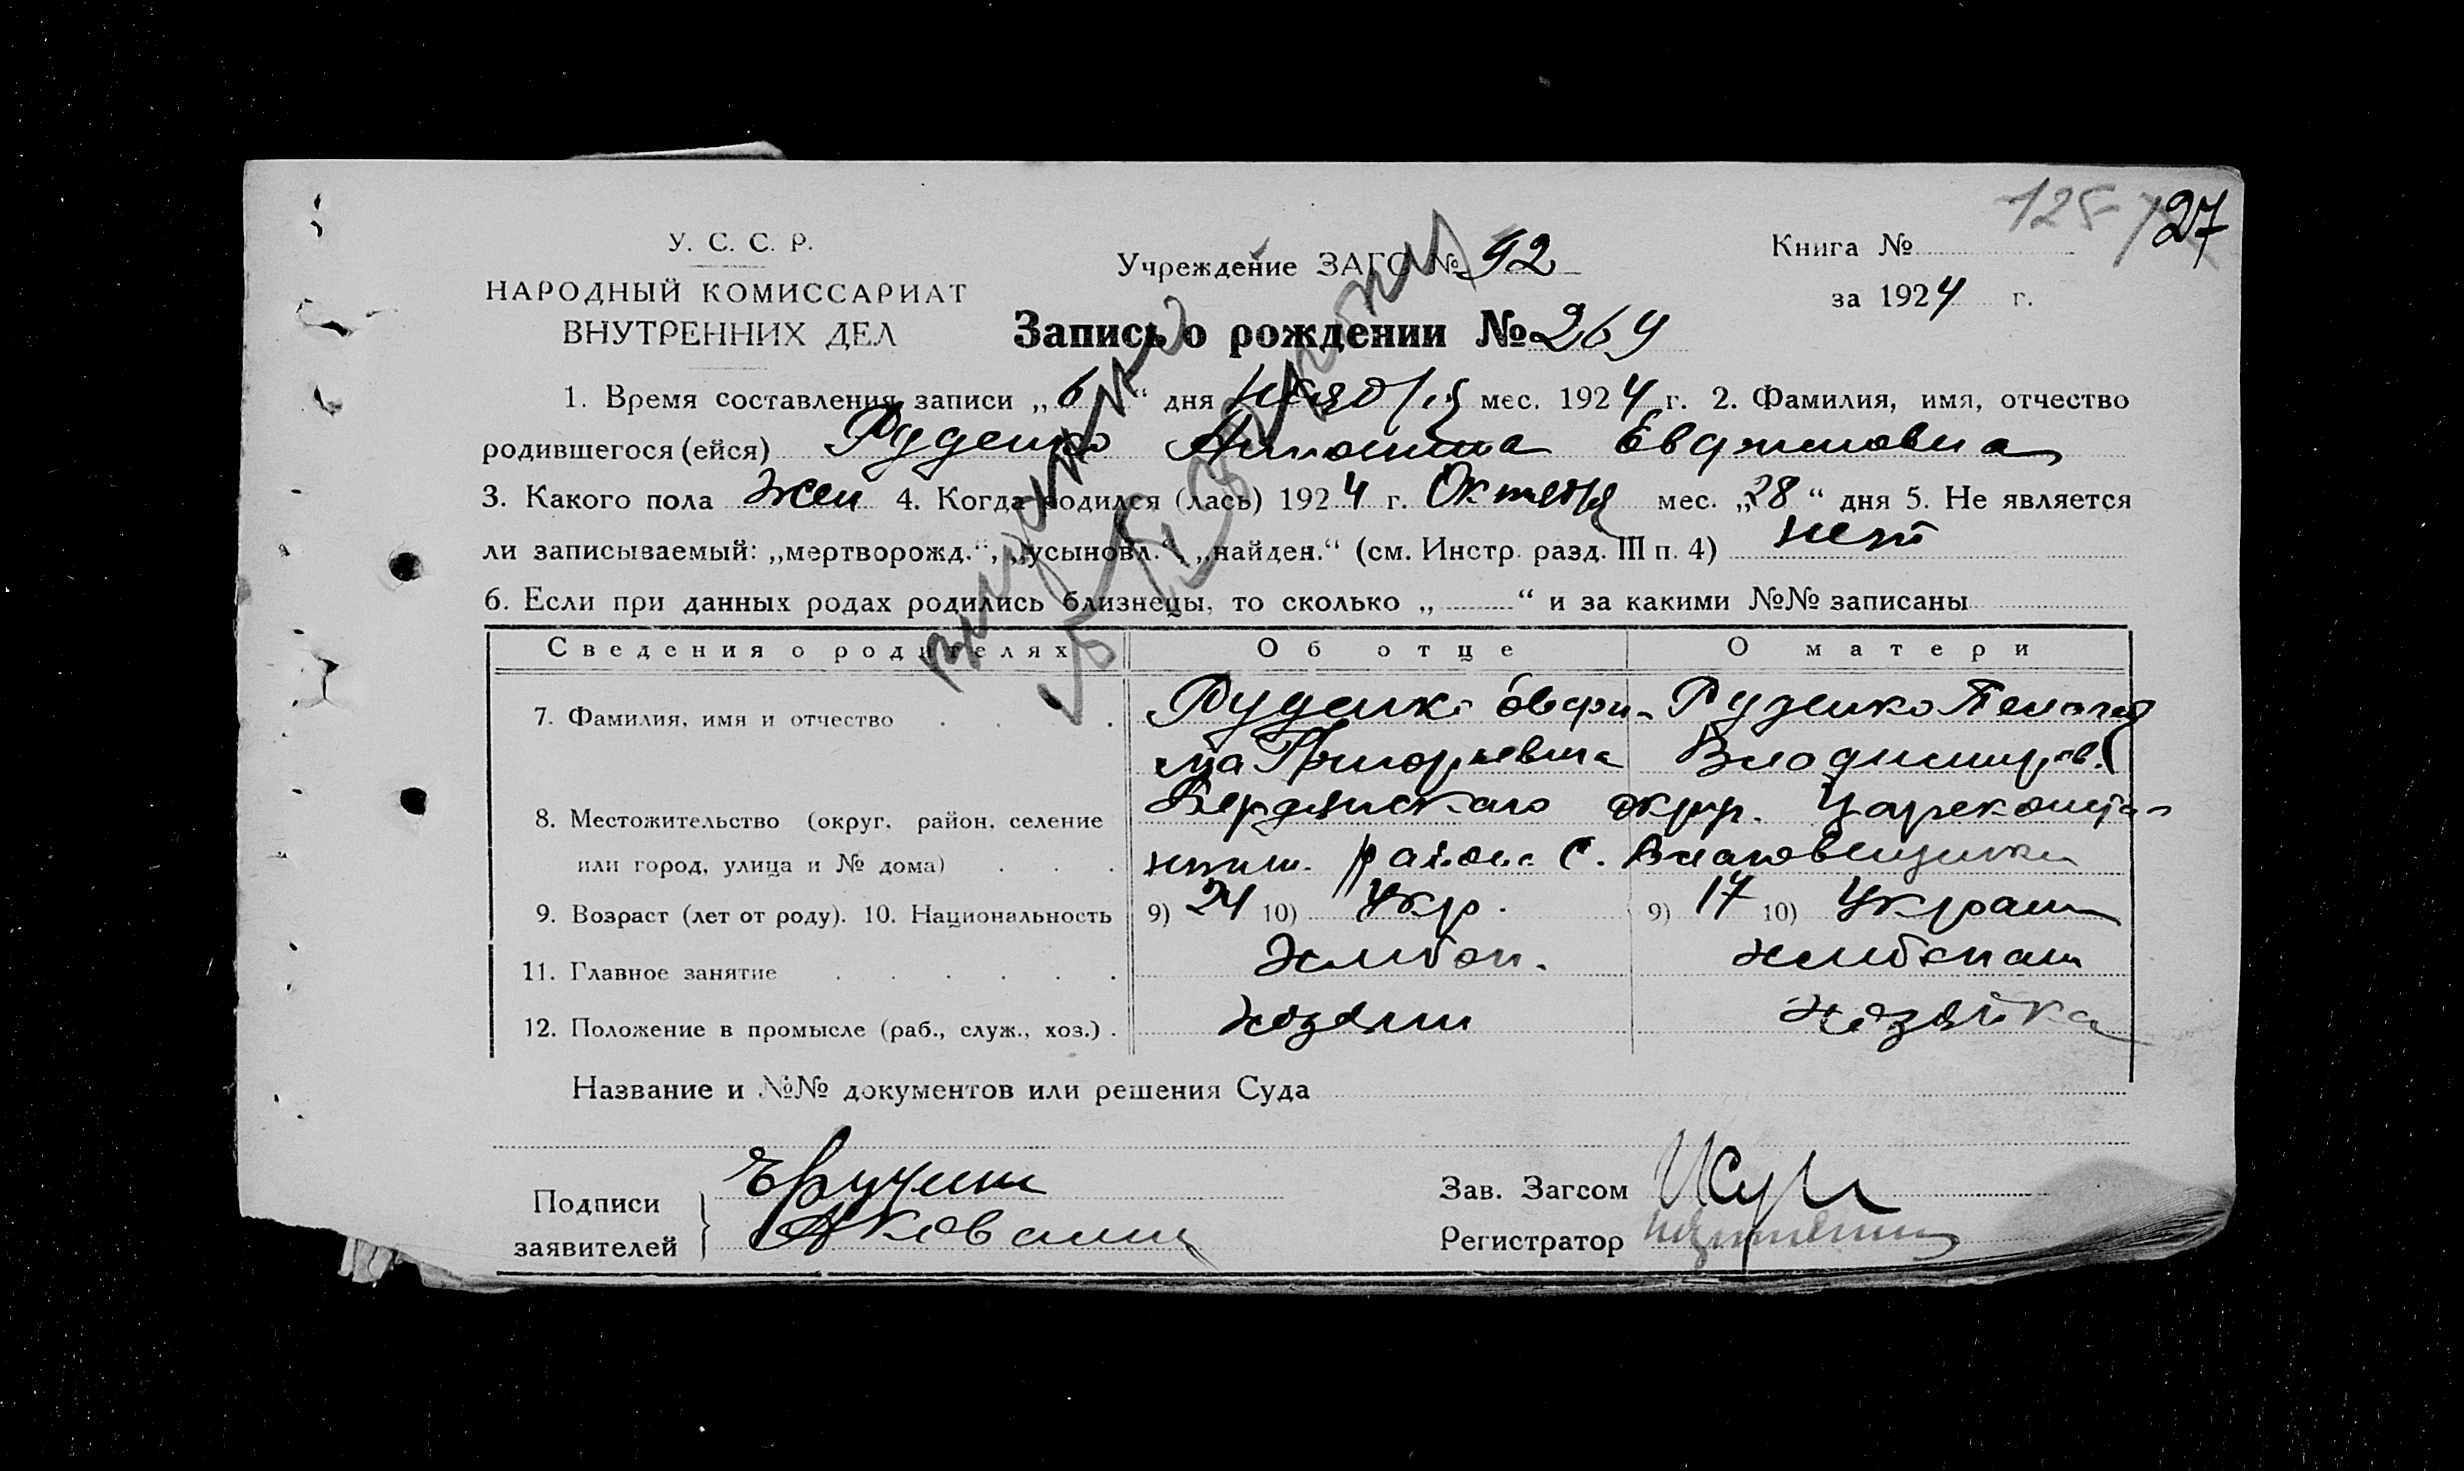 125 127
У. С. С. Р.
НАРОДНЫЙ КОМИССАРИАТ
ВНУТРЕННИХ ДЕЛ
Учреждение ЗАГС № 92
Книга №
за 1924 г.
Запись о рождении № 269
1. Время составления записи „6“ дня ноября мес. 1924 г. 2. Фамилия, имя, отчество
родившегося (ейся) Руденко Антонина Евфимовна
3. Какого пола жен 4. Когда родился (лась) 1924 г. Октября мес. „28“ дня 5. Не является
ли записываемый: „мертворожд.“, „усыновл.“, „найден.“ (см. Инстр. разд. III п. 4) нет
6. Если при данных родах родились близнецы, то сколько „ “ и за какими №№ записаны
Сведения о родителях Об отце О матери
7. Фамилия, имя и отчество Руденко Евфи- Руденко Пелагея
ма Григорьевича Владимиров.
8. Местожительство (округ, район, селение Бердянского окр. Цареконста-
или город, улица и № дома) района с.
9. Возраст (лет от роду). 10. Национальность 9) 24 10) Укр. 9) 17 10) Украин
11. Главное занятие Хлебоп. хлебопаш
12. Положение в промысле (раб., служ., хоз.) хозяин хозяйка
Название и №№ документов или решения Суда
Подписи
заявителей
Зав. Загсом
Регистратор